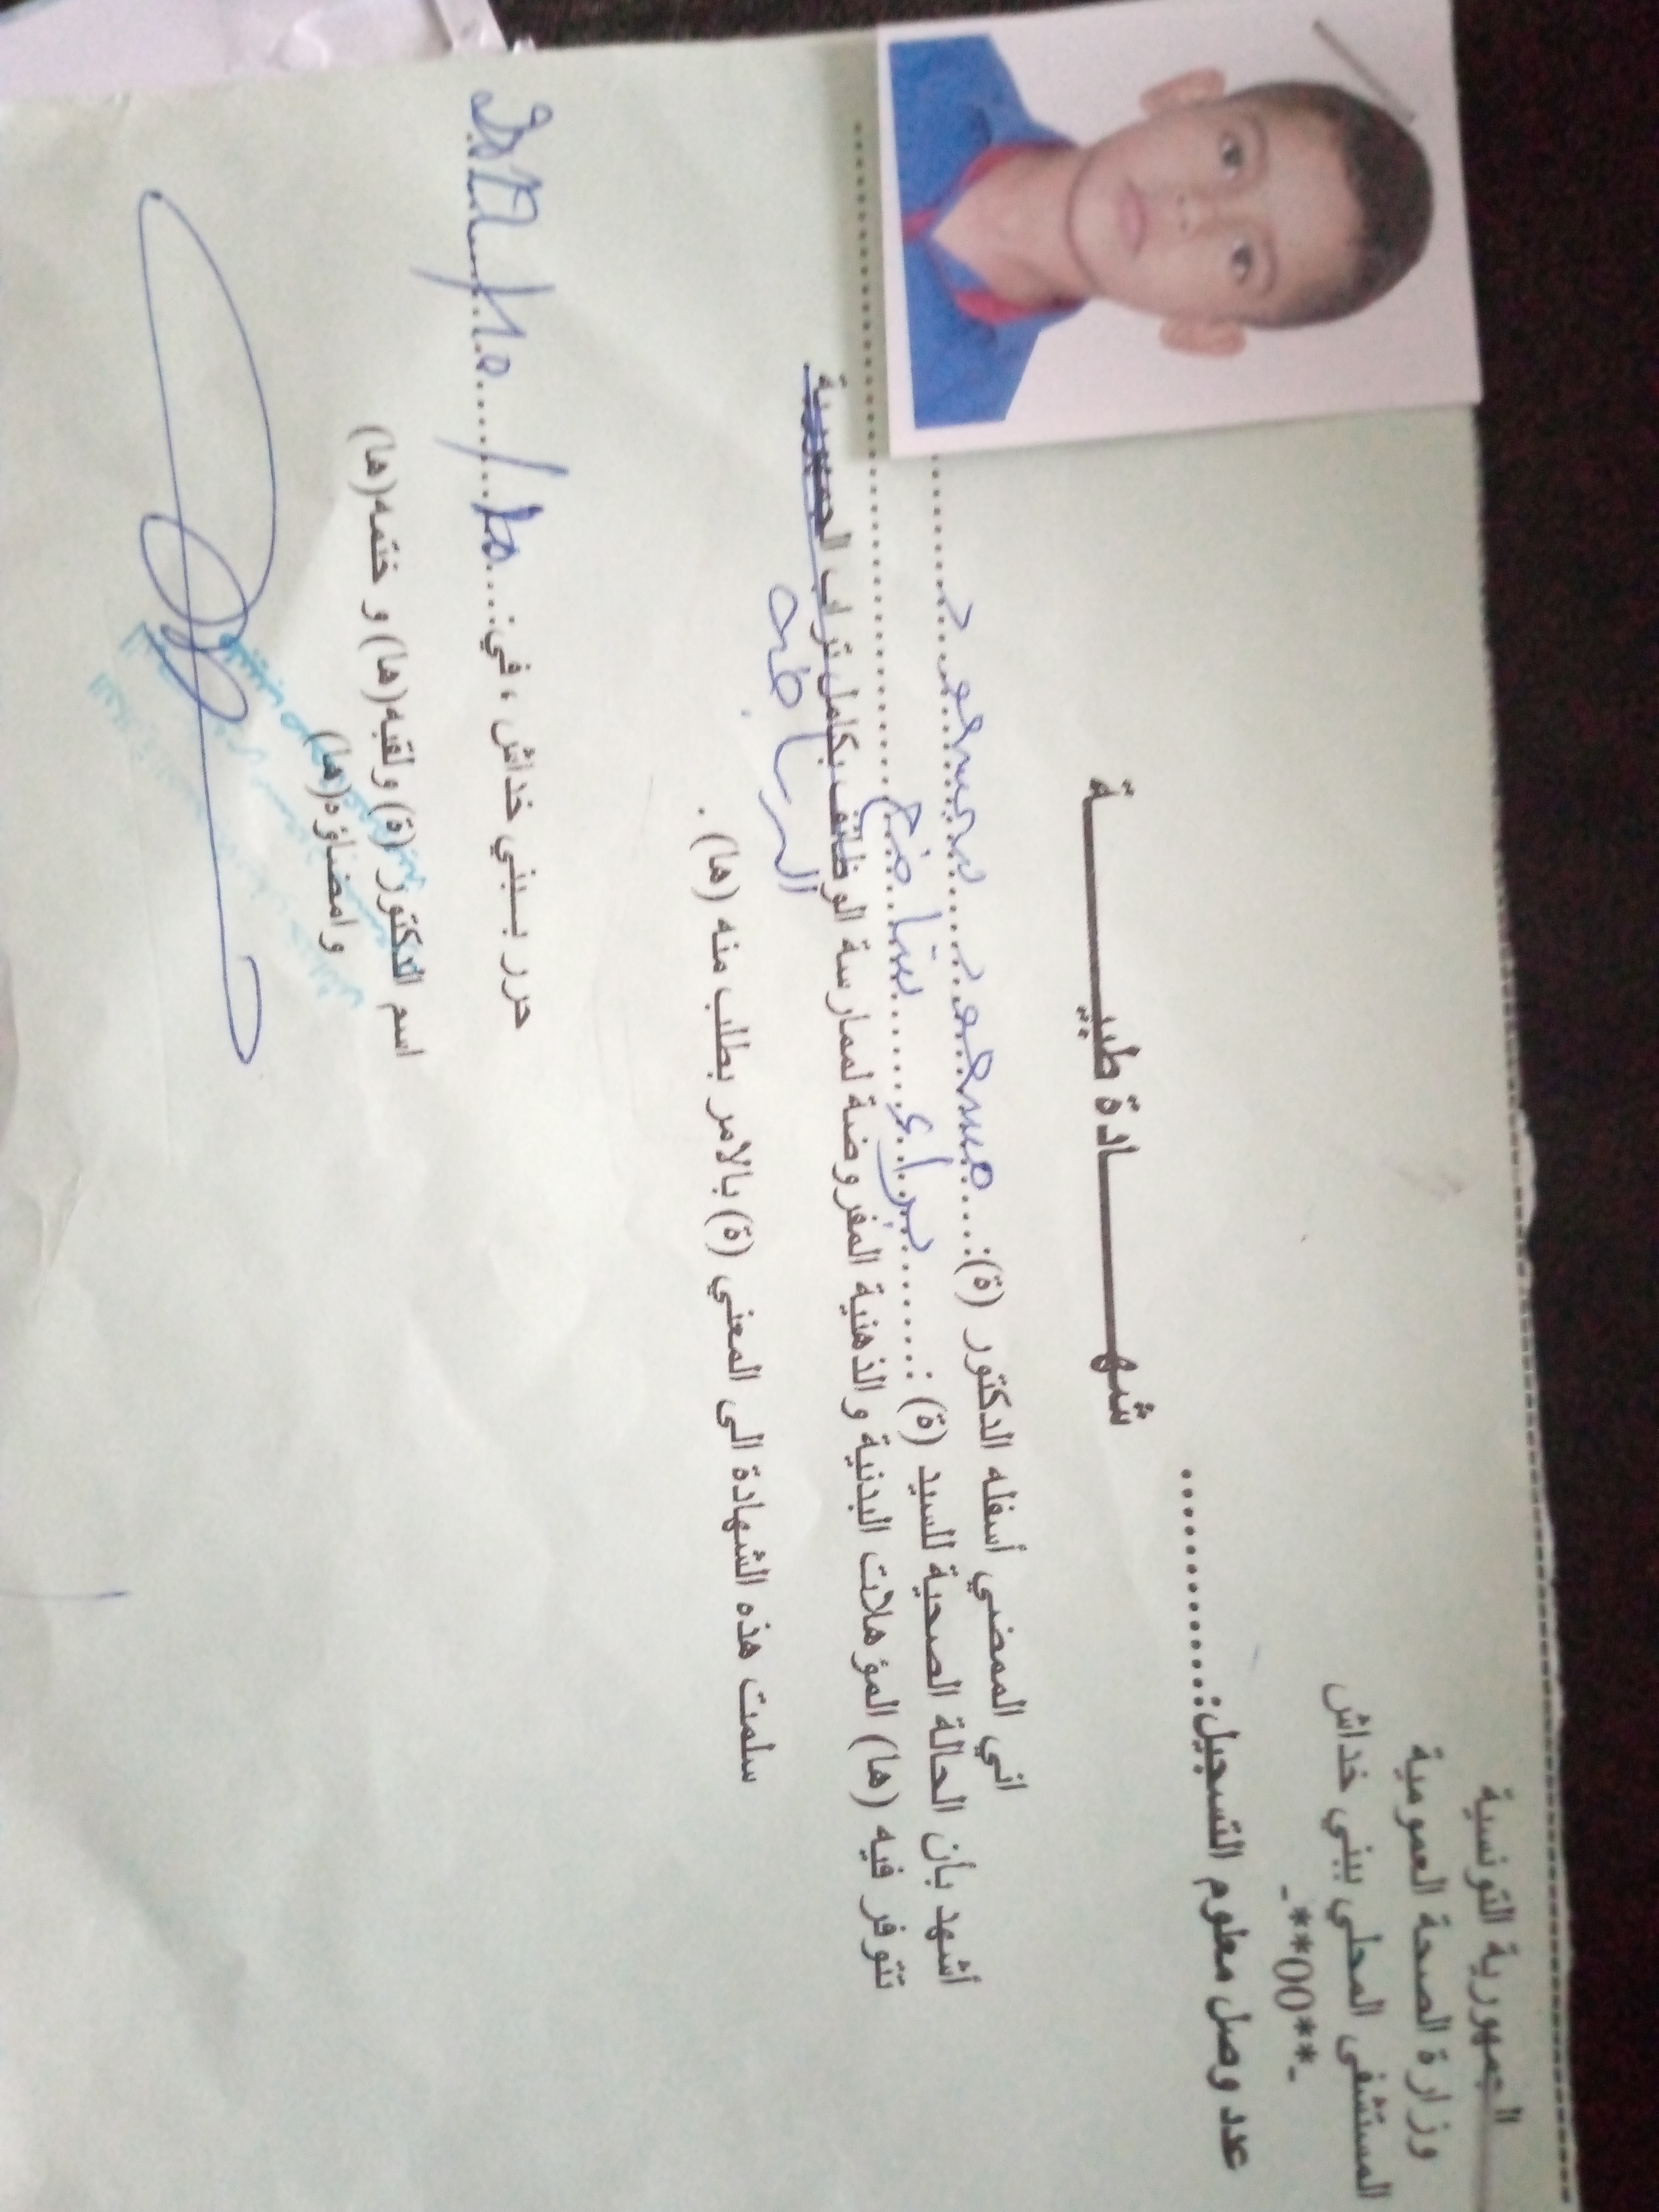 الجمهورية التونسية
وزارة الصحة العمومية
المستشفى المحلي ببني خداش
-**00**-
عدد وصل معلوم التسجيل:............
شهـــــــادة طبيـــــــة
اني الممضي أسفله الدكتور (ة):....
أشهد بأن الحالة الصحية للسيد (ة) :....... براء ........
تتوفر فيه (ها) المؤهلات البدنية والذهنية المفروضة لممارسة الوظائف بكامل تراب الجمهورية.
الرياضة
سلمت هذه الشهادة الى المعني (ة) بالامر بطلب منه (ها) .
حرر ببني خداش ، في:....
اسم الدكتور (ة) ولقبه(ها) و ختمه(ها)
وامضاؤه(ها)